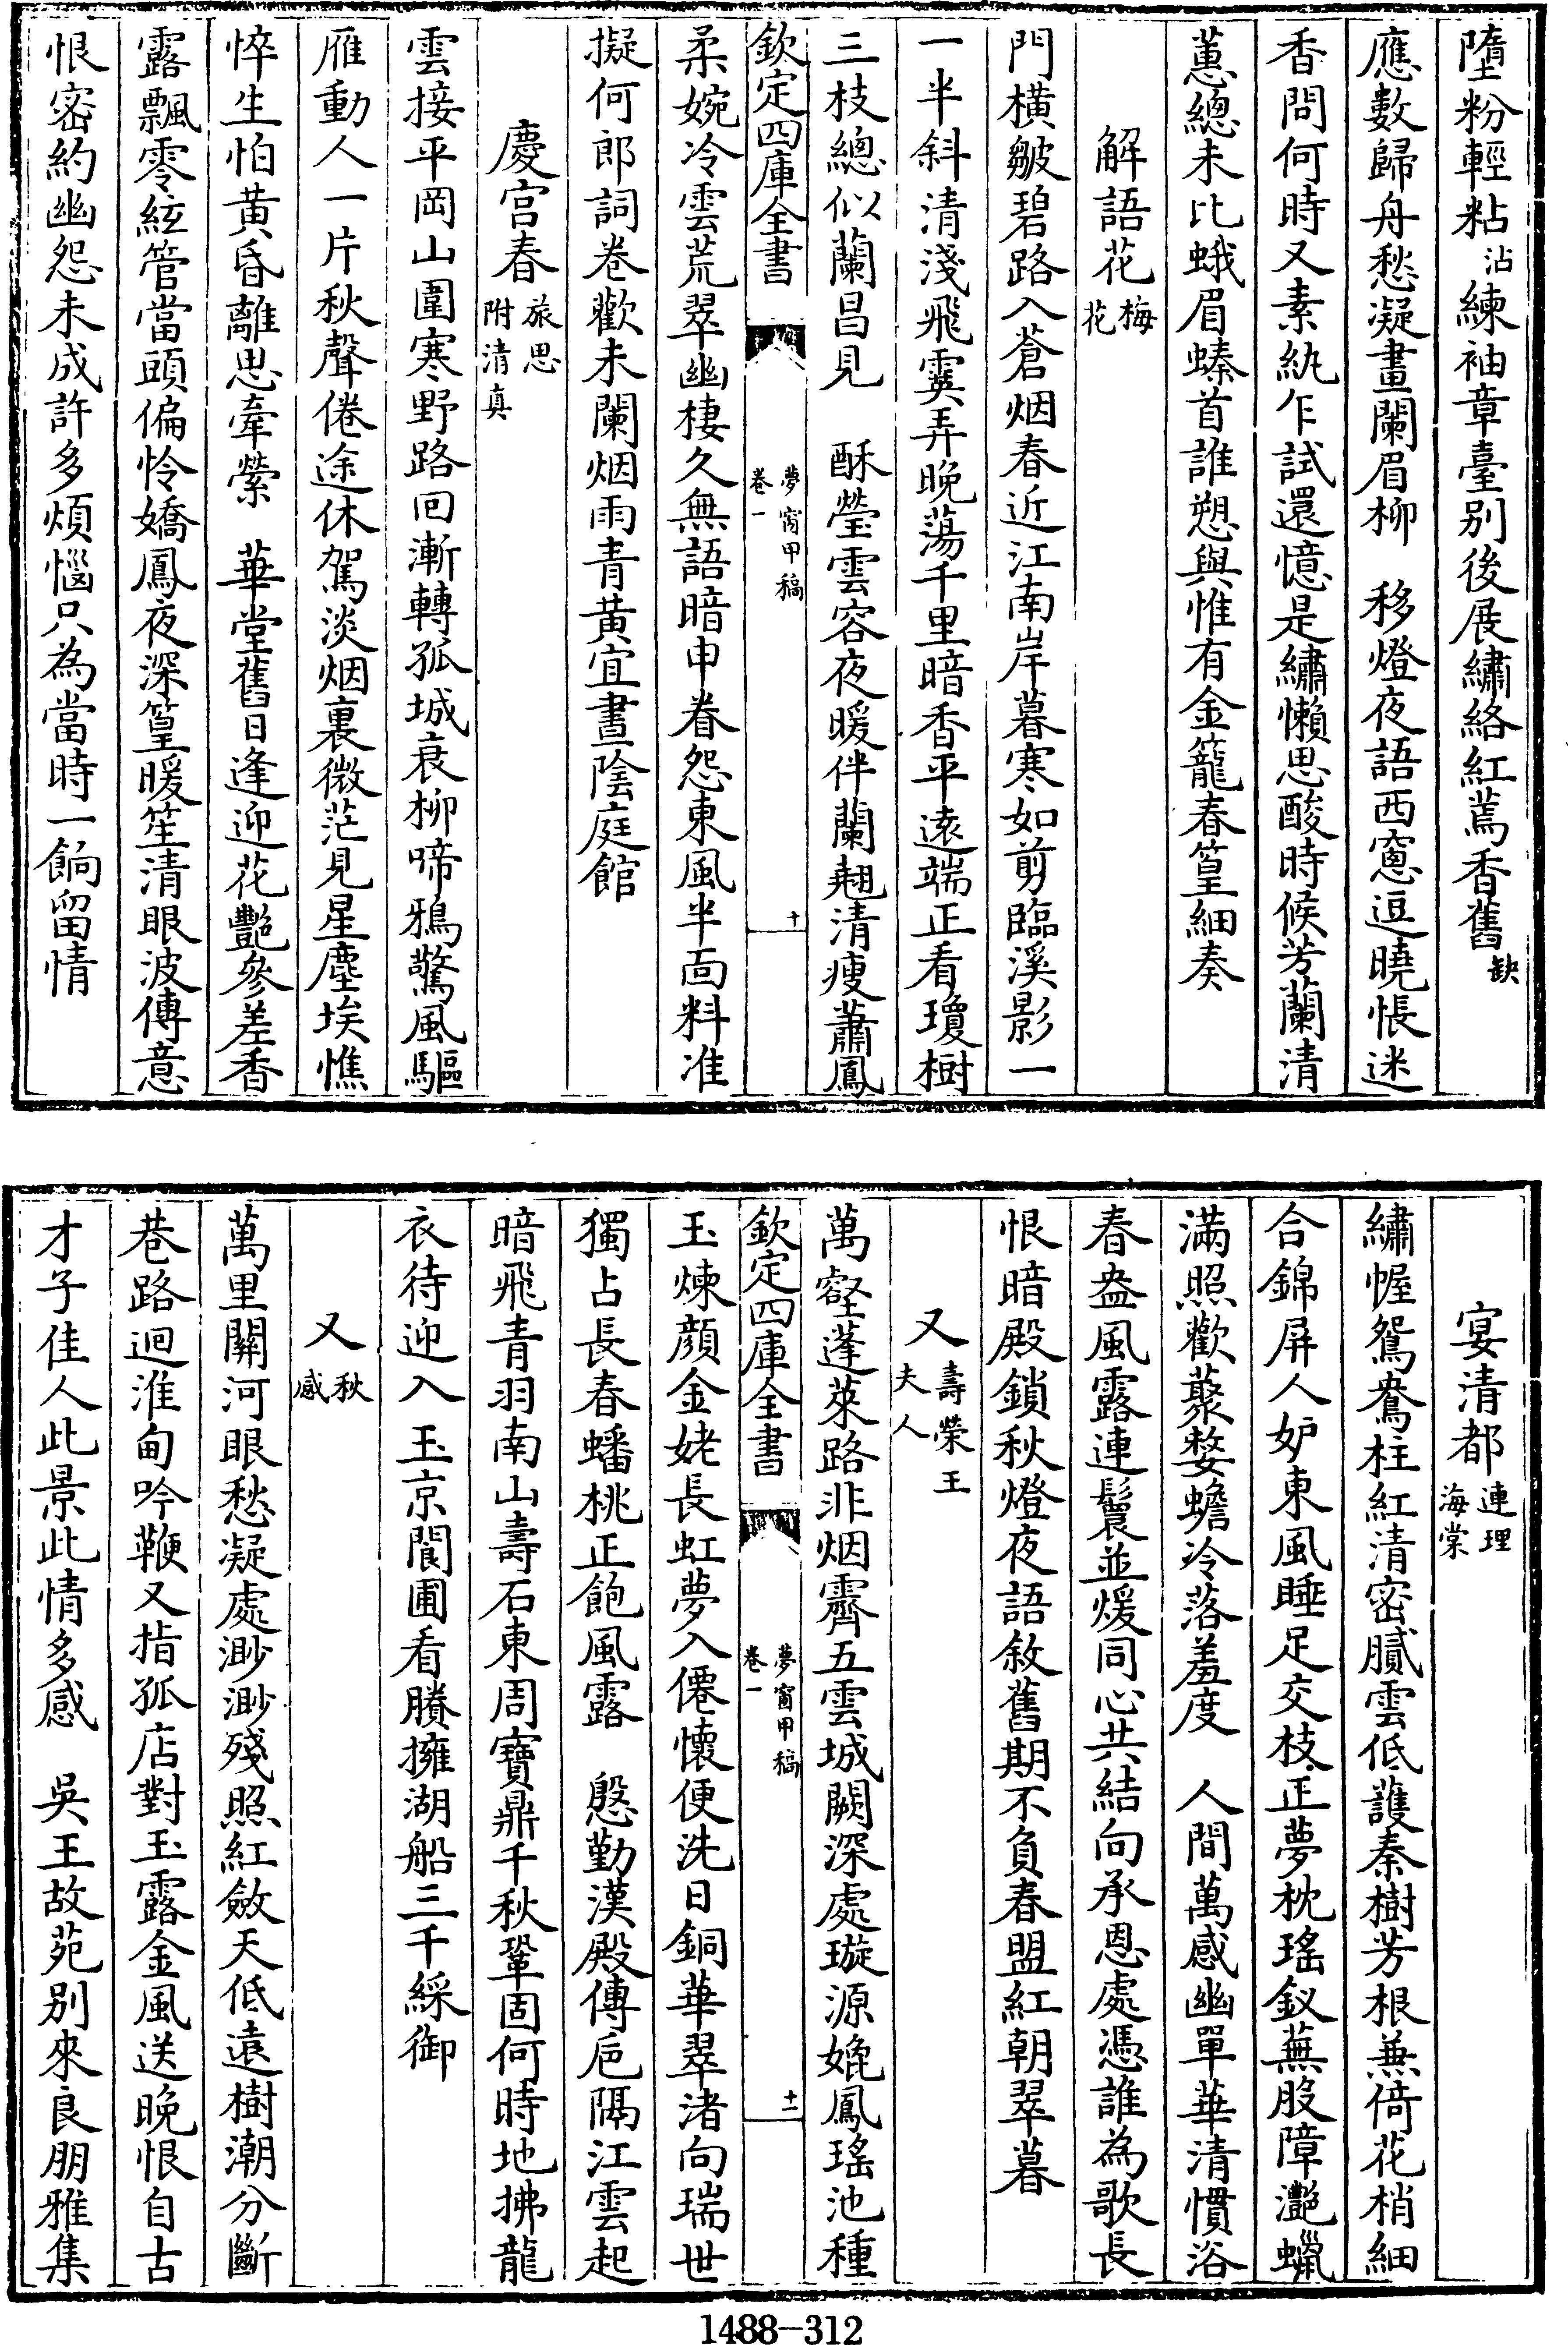 墮粉輕粘沾練袖章臺别後展繡絡紅蔫香舊缺
應數歸舟愁凝畫闌眉柳　移燈夜語西窻逗曉帳迷
香問何時又素紈乍試還憶是繡懶思酸時候芳蘭清
蕙總未比蛾眉螓首誰愬與惟有金籠春篁細奏
解語花梅花
門橫皺碧路入蒼烟春近江南岸暮寒如剪臨溪影一
一半斜清淺飛霙弄晚蕩千里暗香平遠端正看瓊樹
三枝總似蘭昌見　酥瑩雲容夜暖伴蘭翹清瘦蕭鳳
欽定四庫全書　夢窗甲稿卷一　十
柔婉冷雲荒翠幽棲久無語暗申眷怨東風半面料准
擬何郎詞卷歡未闌烟雨青黃宜晝陰庭館
慶宫春旅思附清真
雲接平岡山圍寒野路回漸轉孤城衰柳啼鴉驚風驅
雁動人一片秋聲倦途休駕淡烟裏微茫見星塵埃憔
悴生怕黃昏離思牽縈　華堂舊日逢迎花艷參差香
露飄零絃管當頭偏怜嬌鳳夜深篁暖笙清眼波傳意
恨密約幽怨未成許多煩惱只為當時一餉留情
宴清都連理海棠
繡幄鴛鴦柱紅清密膩雲低護秦樹芳根蒹倚花梢細
合錦屏人妒東風睡足交枝正夢枕瑤釵蕪股障灧蠟
滿照歡藂嫠蟾冷落羞度　人間萬感幽單華清慣浴
春盎風露連鬟並煖同心共結向承恩處憑誰為歌長
恨暗殿鎖秋燈夜語敘舊期不負春盟紅朝翠暮
又壽榮王夫人
萬壑蓬萊路非烟霽五雲城闕深處璇源媲鳳瑤池種
欽定四庫全書　夢窗甲稿卷一　十一
玉煉顏金姥長虹夢入僊懷便洗日銅華翠渚向瑞世
獨占長春蟠桃正飽風露　慇勤漢殿傳巵隔江雲起
暗飛青羽南山壽石東周寶鼎千秋鞏固何時地拂龍
衣待迎入玉京閬圃看賸擁湖船三千綵御
又秋感
萬里關河眼愁凝處渺渺殘照紅斂天低遠樹潮分斷
巷路迴淮甸吟鞭又指孤店對玉露金風送晚恨自古
才子佳人此景此情多感　吳王故苑别來良朋雅集
1488—312